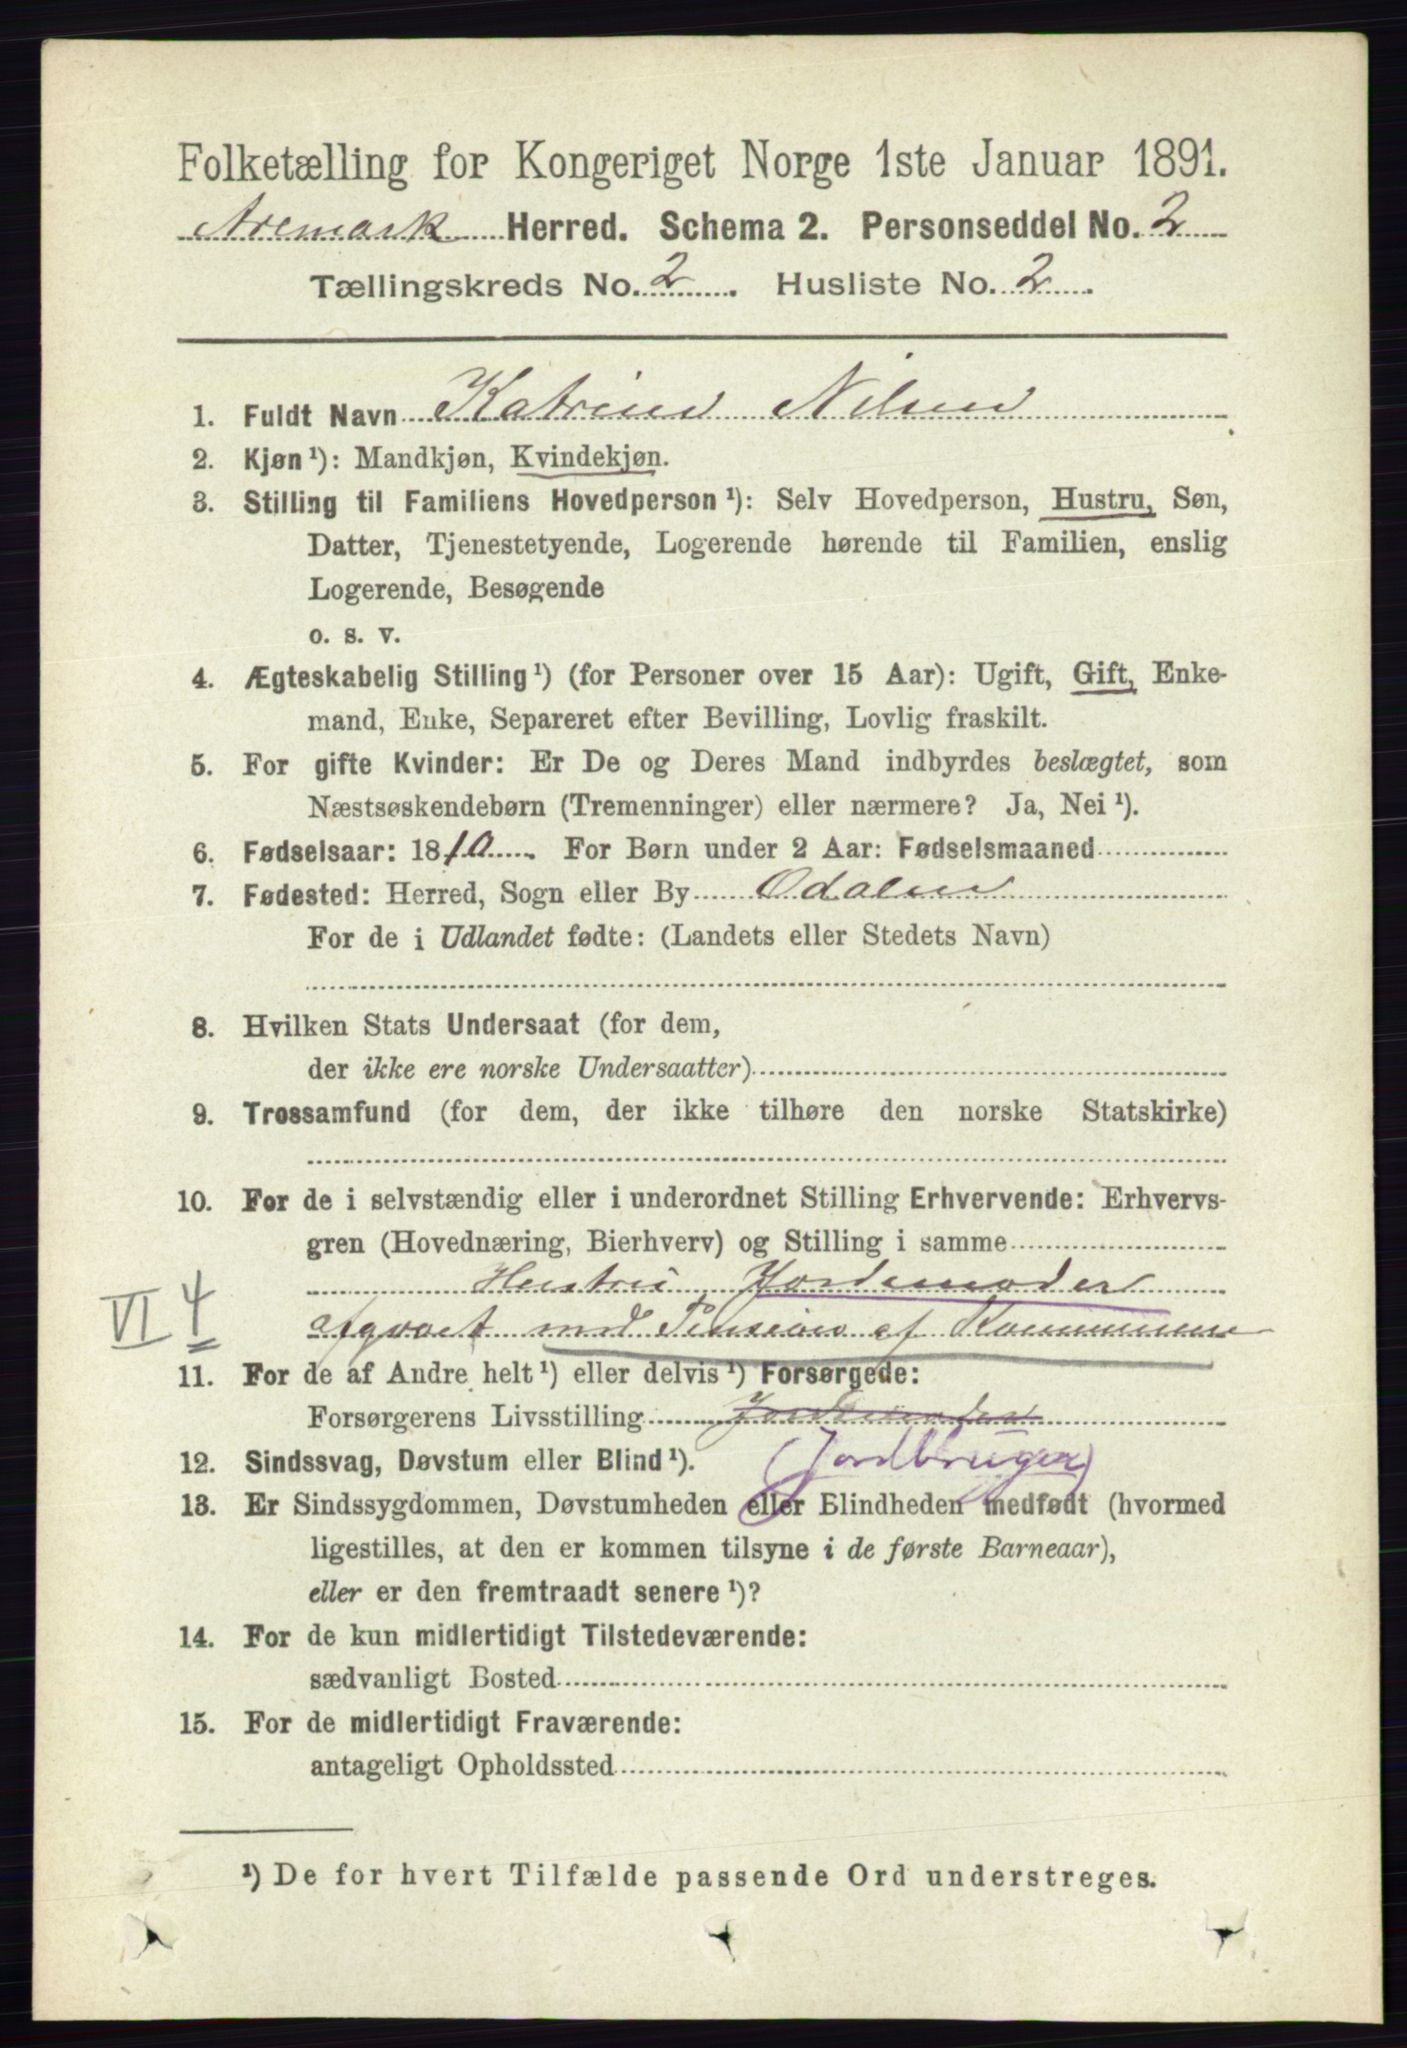 Folketælling for Kongeriget Norge 1ste Januar 1891.
Aremark Herred. Schema 2. Personseddel No. 2
Tællingskreds No. 2. Husliste No. 2.
1. Fuldt Navn Katrine Nilsen
2. Kjøn ¹): Mandkjøn, Kvindekjøn.
3. Stilling til Familiens Hovedperson ¹): Selv Hovedperson, Hustru, Søn,
Datter, Tjenestetyende, Logerende hørende til Familien, enslig
Logerende, Besøgende
o. s. v.
4. Ægteskabelig Stilling ¹) (for Personer over 15 Aar): Ugift, Gift, Enke-
mand, Enke, Separeret efter Bevilling, Lovlig fraskilt.
5. For gifte Kvinder: Er De og Deres Mand indbyrdes beslægtet, som
Næstsøskendebørn (Tremenninger) eller nærmere? Ja, Nei ¹).
6. Fødselsaar: 1810. For Børn under 2 Aar: Fødselsmaaned
7. Fødested: Herred, Sogn eller By Odalen
For de i Udlandet fødte: (Landets eller Stedets Navn)
8. Hvilken Stats Undersaat (for dem,
der ikke ere norske Undersaatter)
9. Trossamfund (for dem, der ikke tilhøre den norske Statskirke)
10. For de i selvstændig eller i underordnet Stilling Erhvervende: Erhvervs-
gren (Hovednæring, Bierhverv) og Stilling i samme
Hustru Jordemoder
VI 4 afgaaet med Pension af Kommunen
11. For de af Andre helt ¹) eller delvis ¹) Forsørgede:
Forsørgerens Livsstilling Jordemoder
12. Sindssvag, Døvstum eller Blind ¹). (Jordbruger)
13. Er Sindssygdommen, Døvstumheden eller Blindheden medfødt (hvormed
ligestilles, at den er kommen tilsyne i de første Barneaar),
eller er den fremtraadt senere ¹)?
14. For de kun midlertidigt Tilstedeværende:
sædvanligt Bosted
15. For de midlertidigt Fraværende:
antageligt Opholdssted
¹) De for hvert Tilfælde passende Ord understreges.